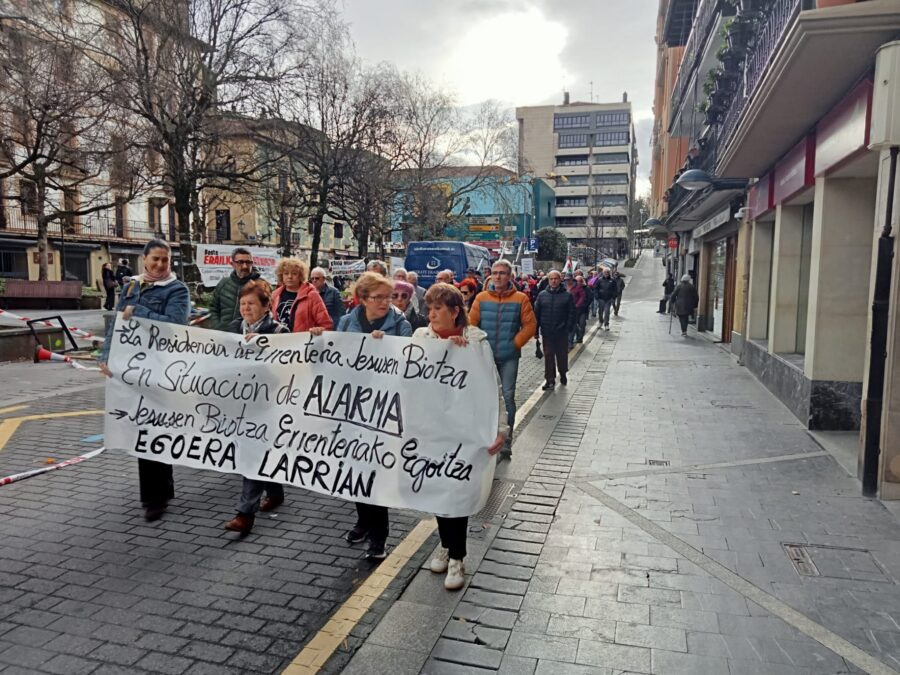 → La Residencia de Errenteria Jesusen Biotza
En Situación de ALARMA
→ Jesusen Biotza Errenteriako Egoitza
EGOERA LARRIAN